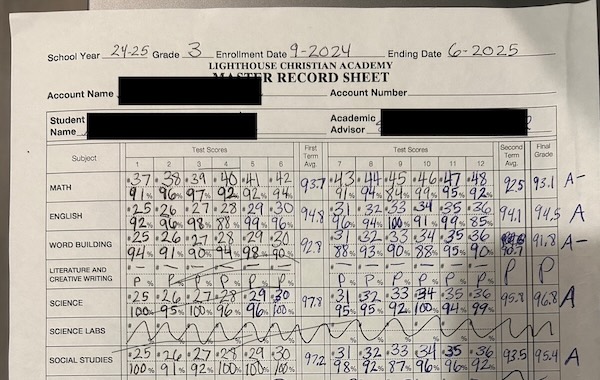 School Year 24-25 Grade 3 Enrollment Date 9-2024 Ending Date 6-2025
LIGHTHOUSE CHRISTIAN ACADEMY
MASTER RECORD SHEET
Account Name Account Number
Student Name Academic Advisor
Subject Test Scores First Term Avg. Test Scores Second Term Avg. Final Grade
1 2 3 4 5 6 7 8 9 10 11 12
MATH #37 #38 #39 #40 #41 #42 93.7 #43 #44 #45 #46 #47 #48 92.5 93.1 A-
91% 96% 97% 92% 92% 94% 91% 94% 84% 99% 95% 92%
ENGLISH #25 #26 #27 #28 #29 #30 94.8 #31 #32 #33 #34 #35 #36 94.1 94.5 A
92% 96% 98% 88% 99% 96% 96% 94% 100% 91% 99% 85%
WORD BUILDING #25 #26 #27 #28 #29 #30 92.8 #31 #32 #33 #34 #35 #36 91.8 A-
94% 91% 90% 94% 98% 90% 88% 93% 90% 88% 95% 90% 90.7
LITERATURE AND CREATIVE WRITING # # # # # # # # # # # # P P
P % P % P % P % P % P % P % P % P % P % P % P %
SCIENCE #25 #26 #27 #28 #29 #30 97.8 #31 #32 #33 #34 #35 #36 95.8 96.8 A
100% 95% 100% 96% 96% 100% 95% 95% 92% 100% 94% 99%
SCIENCE LABS
SOCIAL STUDIES #25 #26 #27 #28 #29 #30 97.2 #31 #32 #33 #34 #35 #36 93.5 95.4 A
100% 91% 92% 100% 100% 100% 98% 92% 87% 96% 96% 92%